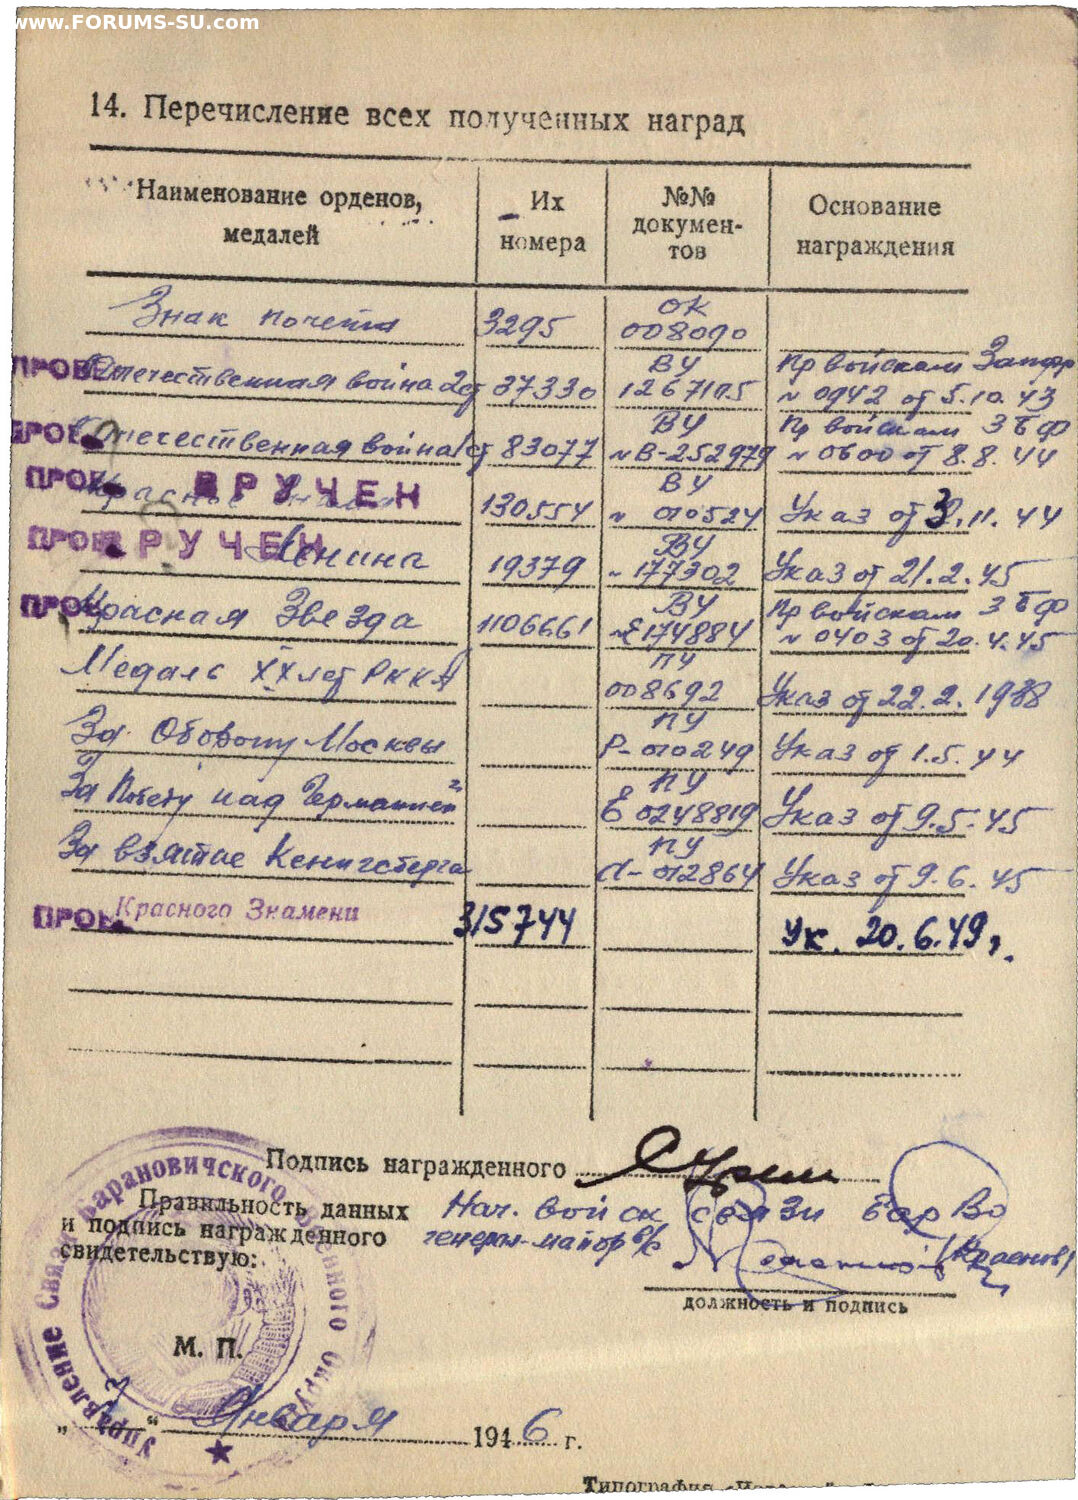 www.FORUMS-SU.com
14. Перечисление всех полученных наград
Наименование орденов, медалей | Их номера | №№ докумен-тов | Основание награждения
Знак почета 3295 ОК 008090
ПРОВЕ Отечественная война 2 ст 37330 ВУ 1267105 Пр войскам Запфр № 0942 от 5.10.43
ПРОВ Отечественная война 1 ст 83077 ВУ № В-252979 Пр войскам 3 БФ № 0600 от 8.8.44
ПРОВ Красное ВРУЧЕН 130554 ВУ № 010524 Указ от 3.11.44
ПРОВ ВРУЧЕН Ленина 19379 ВУ № 177302 Указ от 21.2.45
ПРОВ Красная Звезда 1106661 ВУ № Е 174884 Пр войскам 3 БФ № 0403 от 20.4.45
Медаль XX лет РККА ПУ 008692 Указ от 22.2.1938
За Оборону Москвы ПУ Р-010249 Указ от 1.5.44
За Победу над Германией ПУ Е 0248819 Указ от 9.5.45
За взятие Кенигсберга ПУ А-012864 Указ от 9.6.45
ПРОВ Красного Знамени 315744 Ук. 20.6.49 г.
Подпись награжденного
Правильность данных
и подпись награжденного
свидетельствую:
Нач. войск связи БарВо
генерал-майор в/с
(Краснов)
должность и подпись
М. П.
Управление Связи Барановичского Военного Округа
„ “ Января 1946 г.
Типография